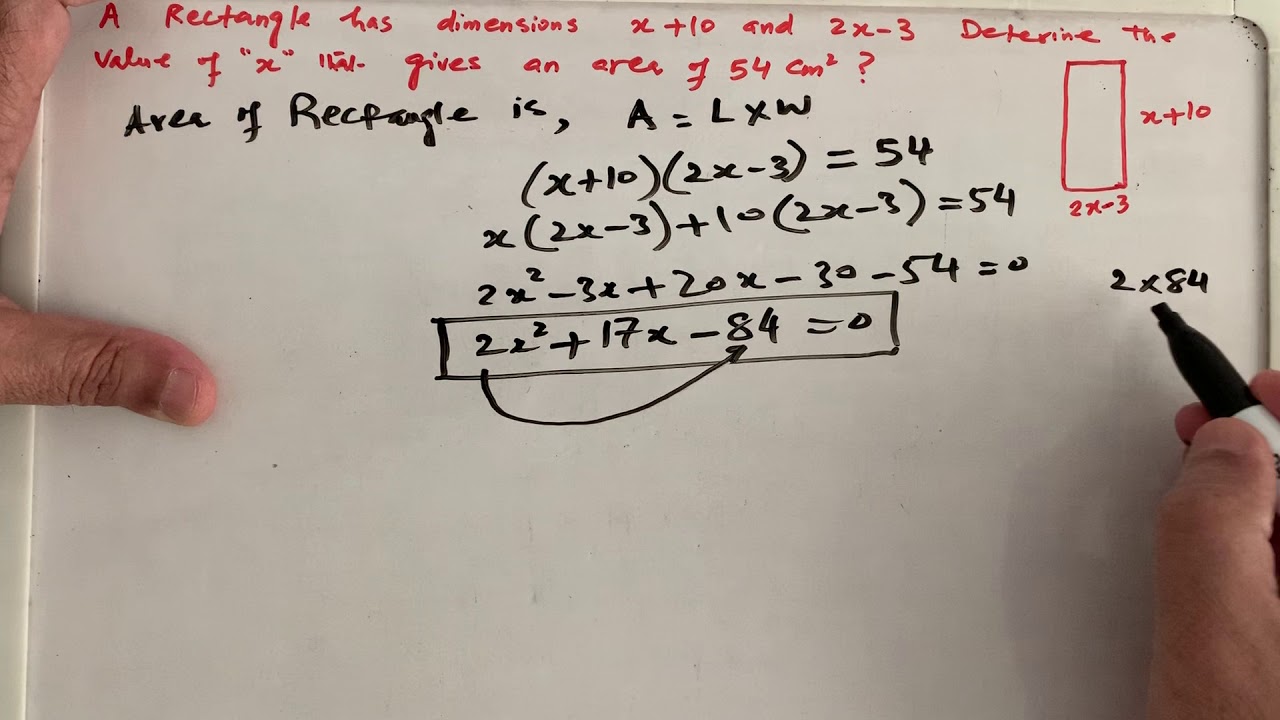 A Rectangle has dimensions x+10 and 2x-3 Deterine the
value of "x" gives an area of 54 cm² ?
Area of Rectangle is, A = L X W
x+10
(x+10)(2x-3) = 54
x(2x-3)+10(2x-3)=54
2x-3
2x²-3x+20x-30-54=0
2x84
2x²+17x-84=0